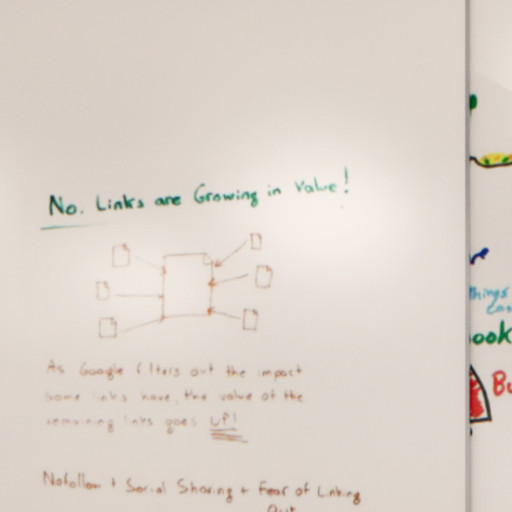 No. Links are Growing in Value!
As Google filters out the impact
some links have, the value of the
remaining links goes UP!
Nofollow + Social Sharing + Fear of Linking
Out
things
can
ook
Bu